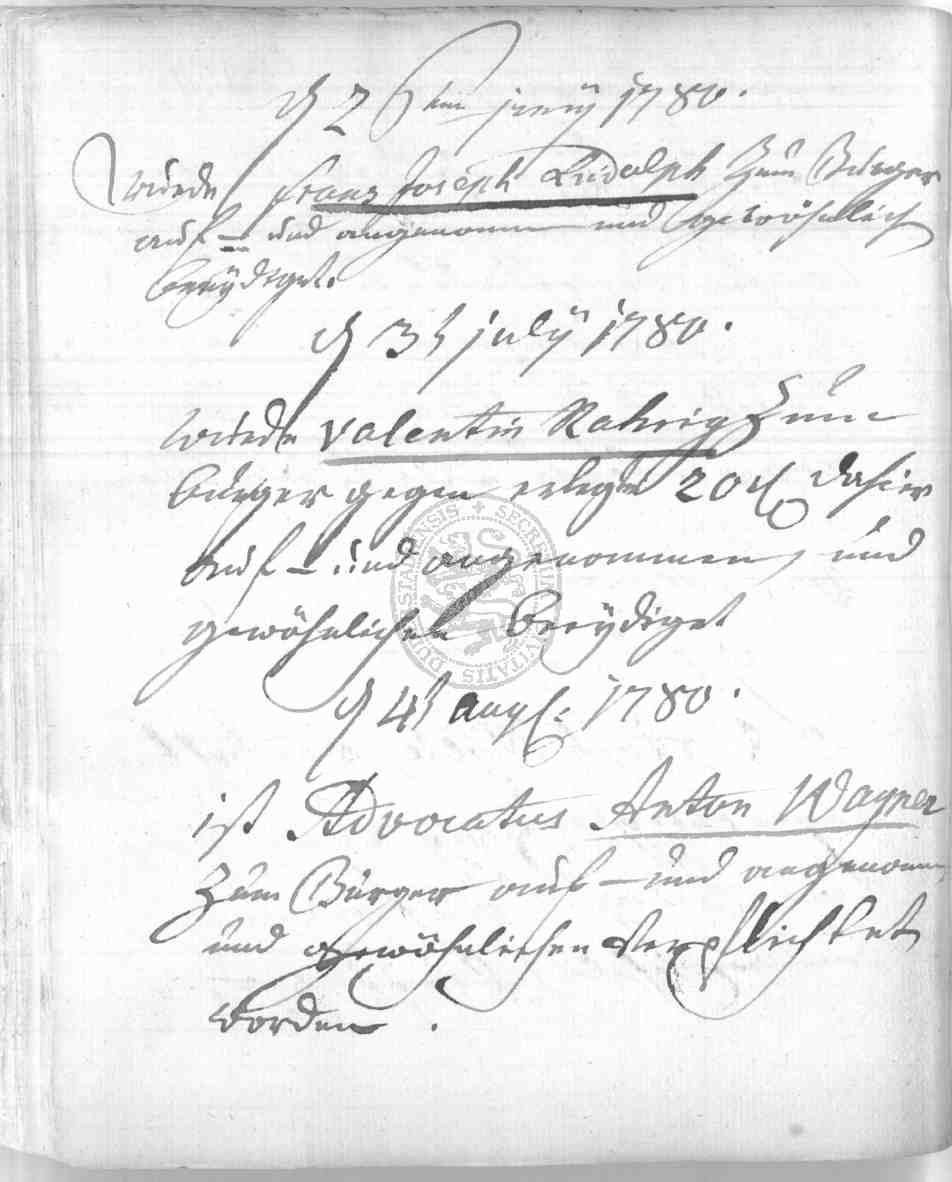 d 2ten junÿ 1780.
wurde franz Joseph Rudolph zum Bürger
auf- und angenomm und gewöhnlich
beeÿdiget.
d 3t julÿ 1780.
wurde valentin Rahrig zum
burger gegen erlegte 20 fl dahier
auf- und angenommen, und
gewöhnlichen beeÿdiget
d 4t aug. 1780.
ist Advocatus Anton Wagner
zum Bürger auf- und angenomm
und gewöhnlichen verpflichtet
worden.
SECRETUM CIVITATIS DUDERSTADENSIS